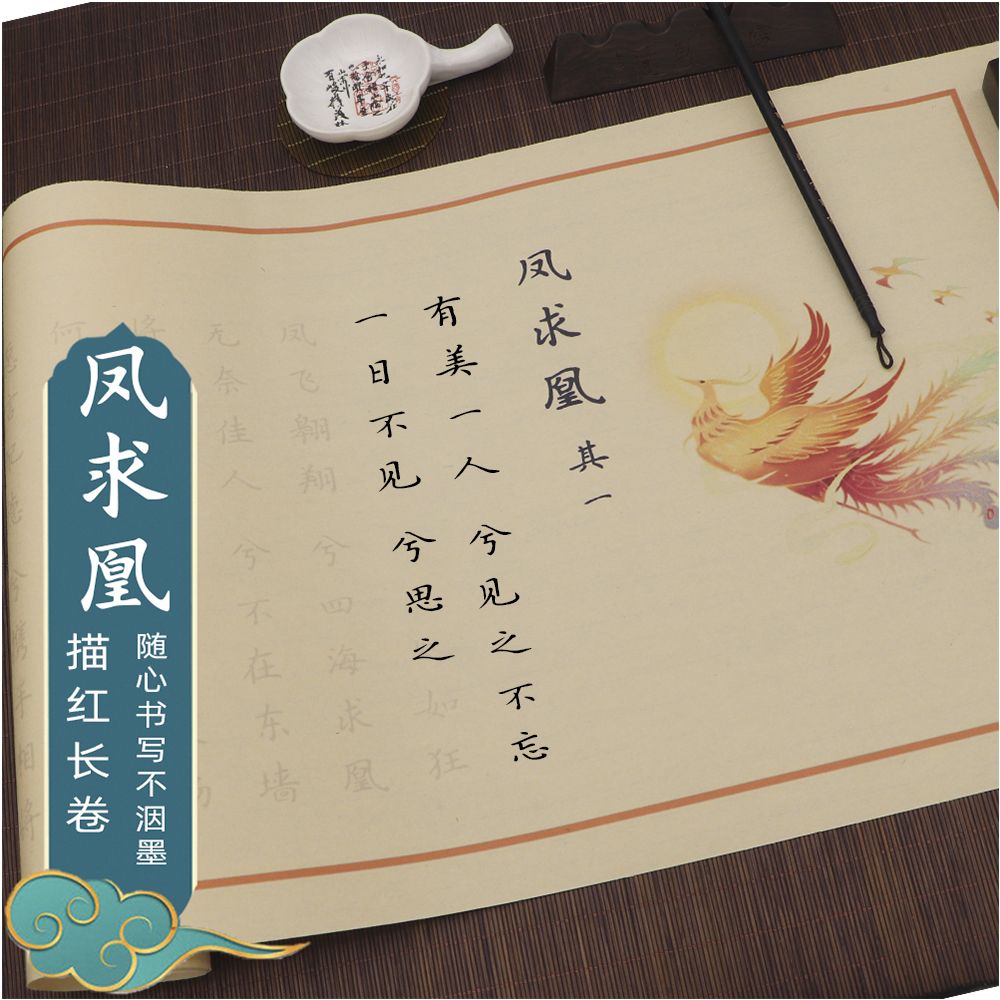 凤求凰 其一
有美一人 兮见之不忘
一日不见 兮思之如狂
凤飞翱翔 兮四海求凰
无奈佳人 兮不在东墙
将
何
德 兮 携手相将
凤求凰
随心书写不洇墨
描红长卷